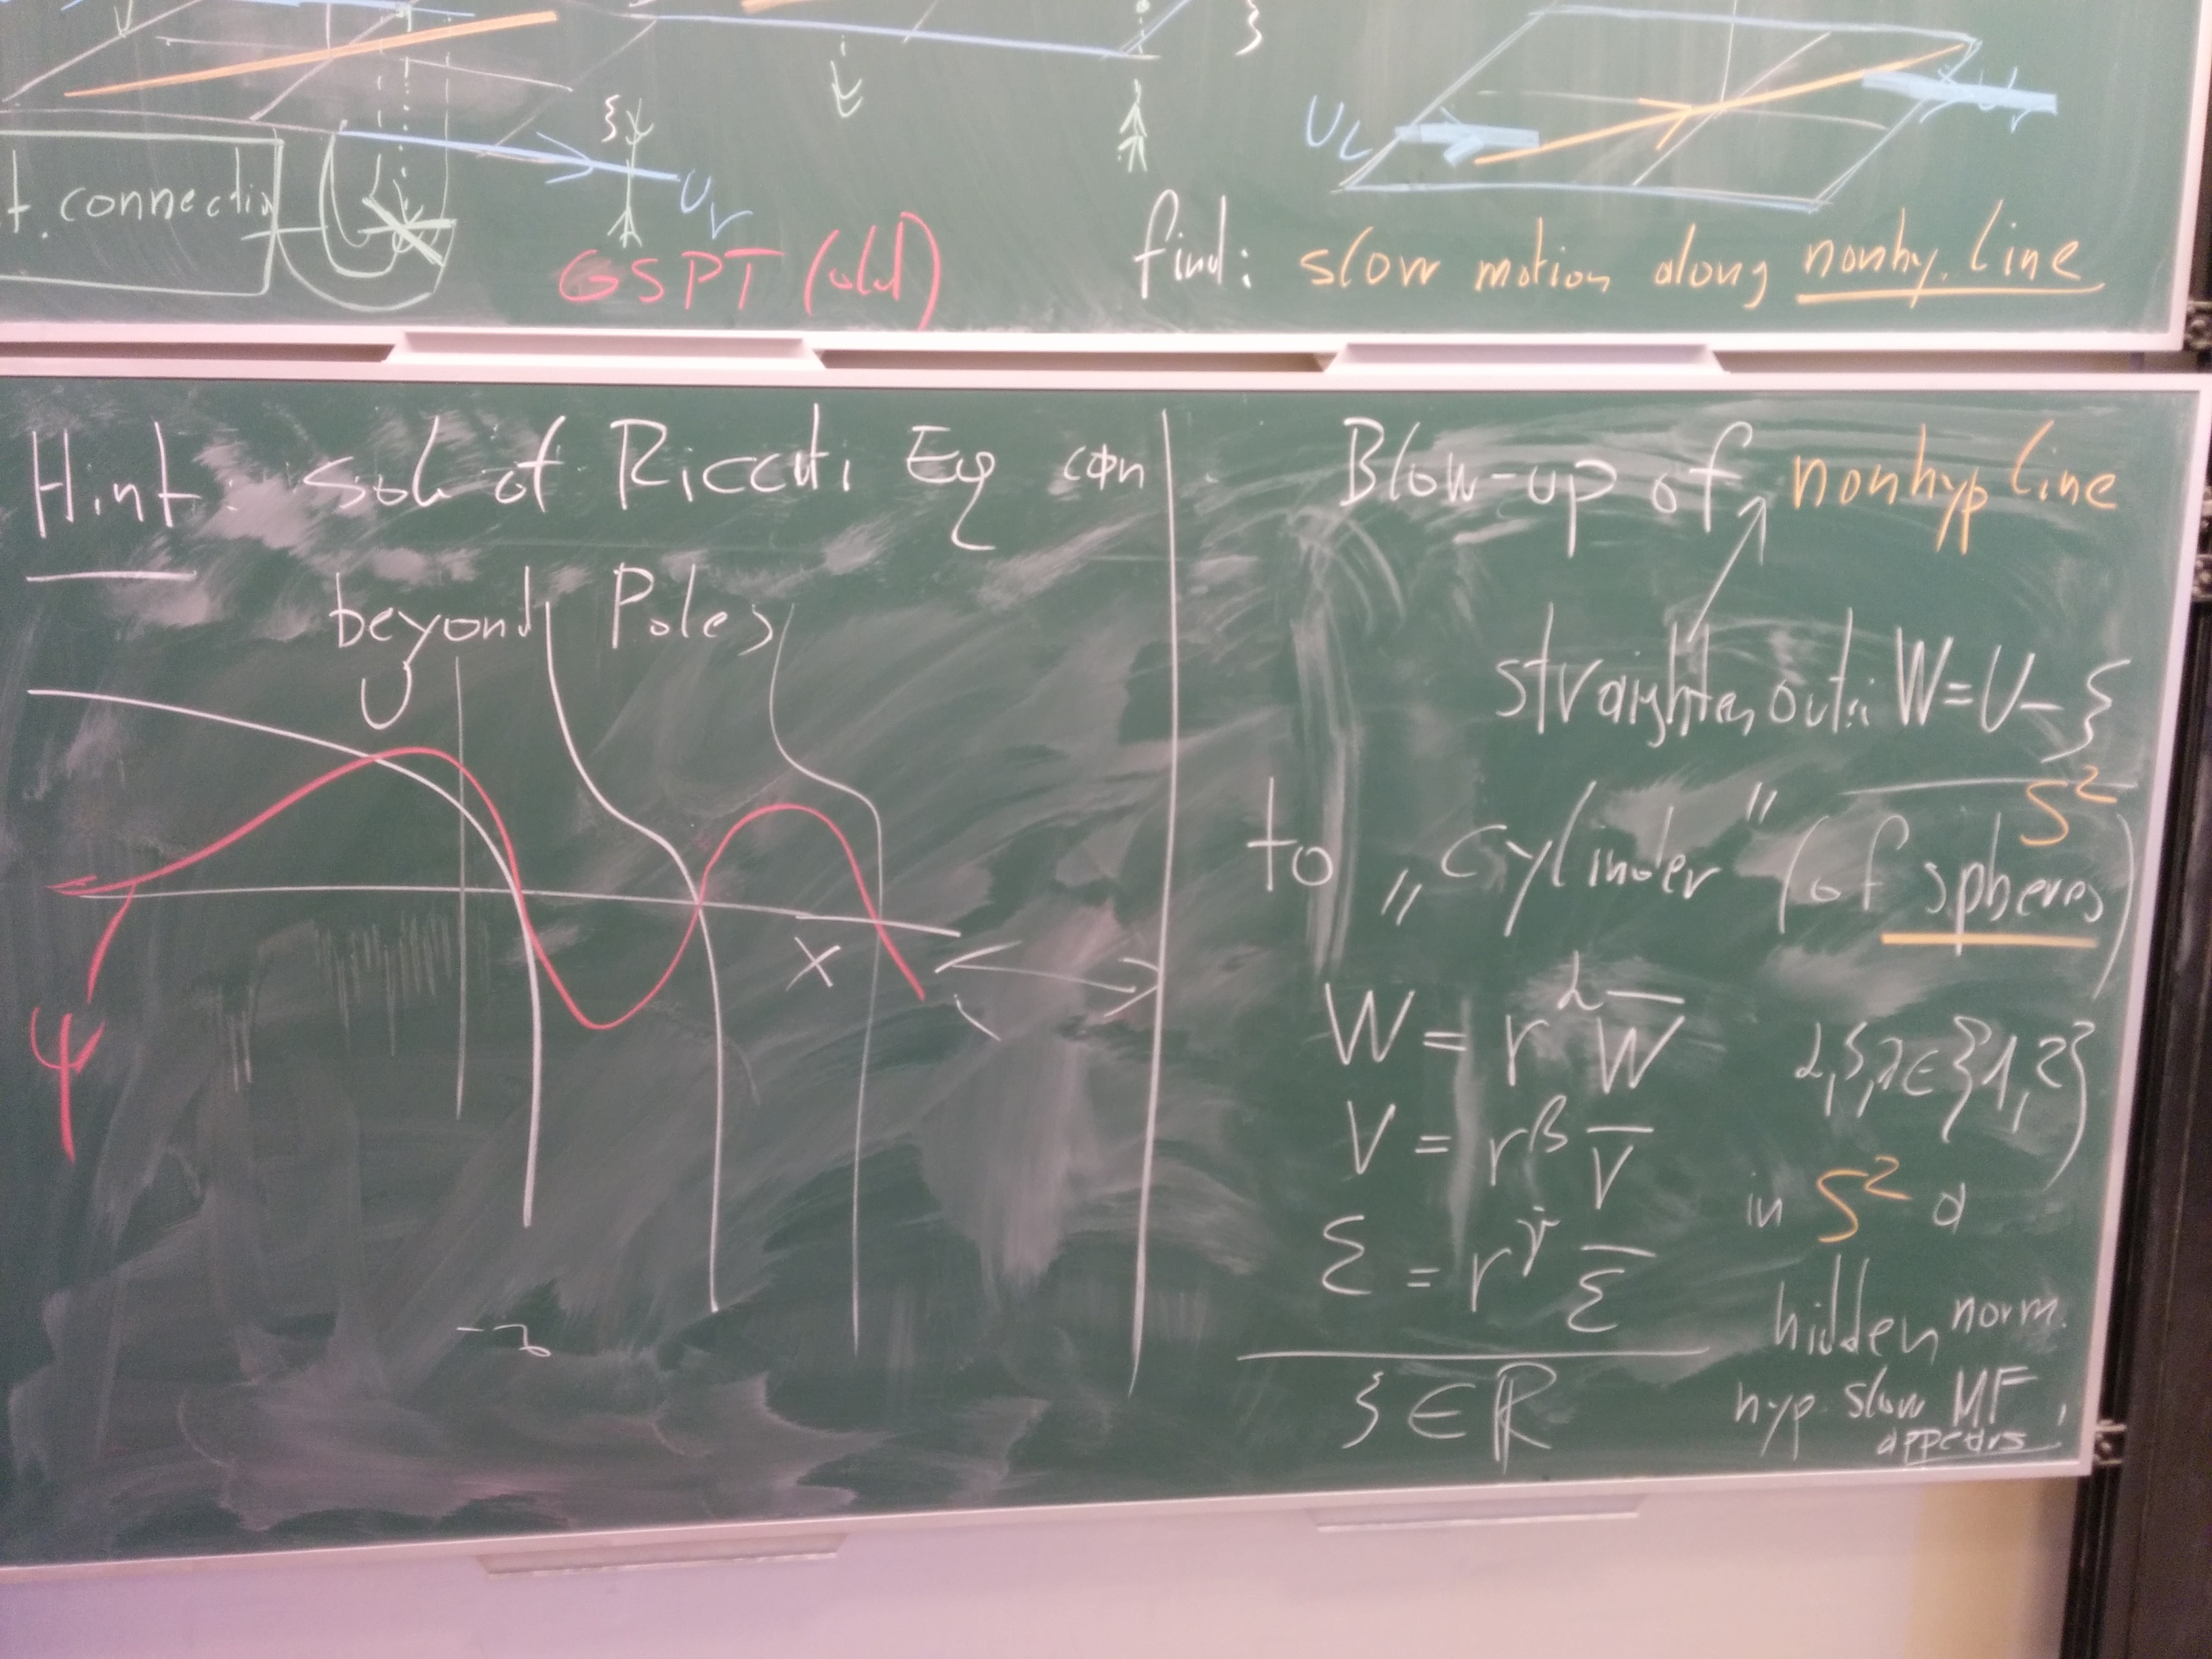 t. connectio
U_r
GSPT (old)
ξ
ξ
U_L
U_r
find: slow motion along nonhy. line
Hint: sol. of Riccati Eq can
beyond Poles
U
Ψ
X
Blow-up of nonhyp line
straighten out: W = U - ξ
to „cylinder" (of spheres)
S²
W = r^α W̄
α, β, γ ∈ {1, 2}
V = r^β V̄
ε = r^γ ε̄
ξ ∈ ℝ
in S² a
hidden norm.
hyp. slow MF
appears